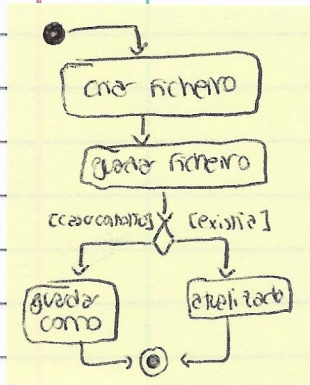 criar ficheiro
guardar ficheiro
[caso contrário] [existia]
guardar
como
atualizado